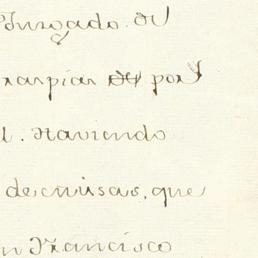 Juzgado de
raspias por
l. Haviendo
de camisas, que
n Francisco